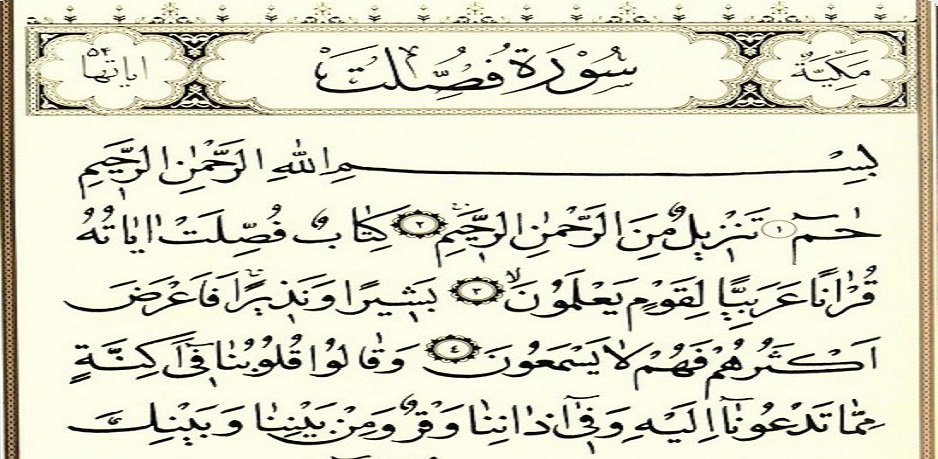 مَكِّيَّةٌ سُورَةُ فُصِّلَتْ اٰيَاتُهَا ٥٤
بِسْمِ اللّٰهِ الرَّحْمٰنِ الرَّحِيمِ
حٰمٓ ١ تَنْزِيلٌ مِنَ الرَّحْمٰنِ الرَّحِيمِ ٢ كِتَابٌ فُصِّلَتْ اٰيَاتُهُ
قُرْاٰنًا عَرَبِيًّا لِقَوْمٍ يَعْلَمُونَ ٣ بَشِيرًا وَنَذِيرًا فَاَعْرَضَ
اَكْثَرُهُمْ فَهُمْ لَا يَسْمَعُونَ ٤ وَقَالُوا قُلُوبُنَا فٓى اَكِنَّةٍ
مِمَّا تَدْعُونَٓا اِلَيْهِ وَفٓى اٰذَانِنَا وَقْرٌ وَمِنْ بَيْنِنَا وَبَيْنِكَ